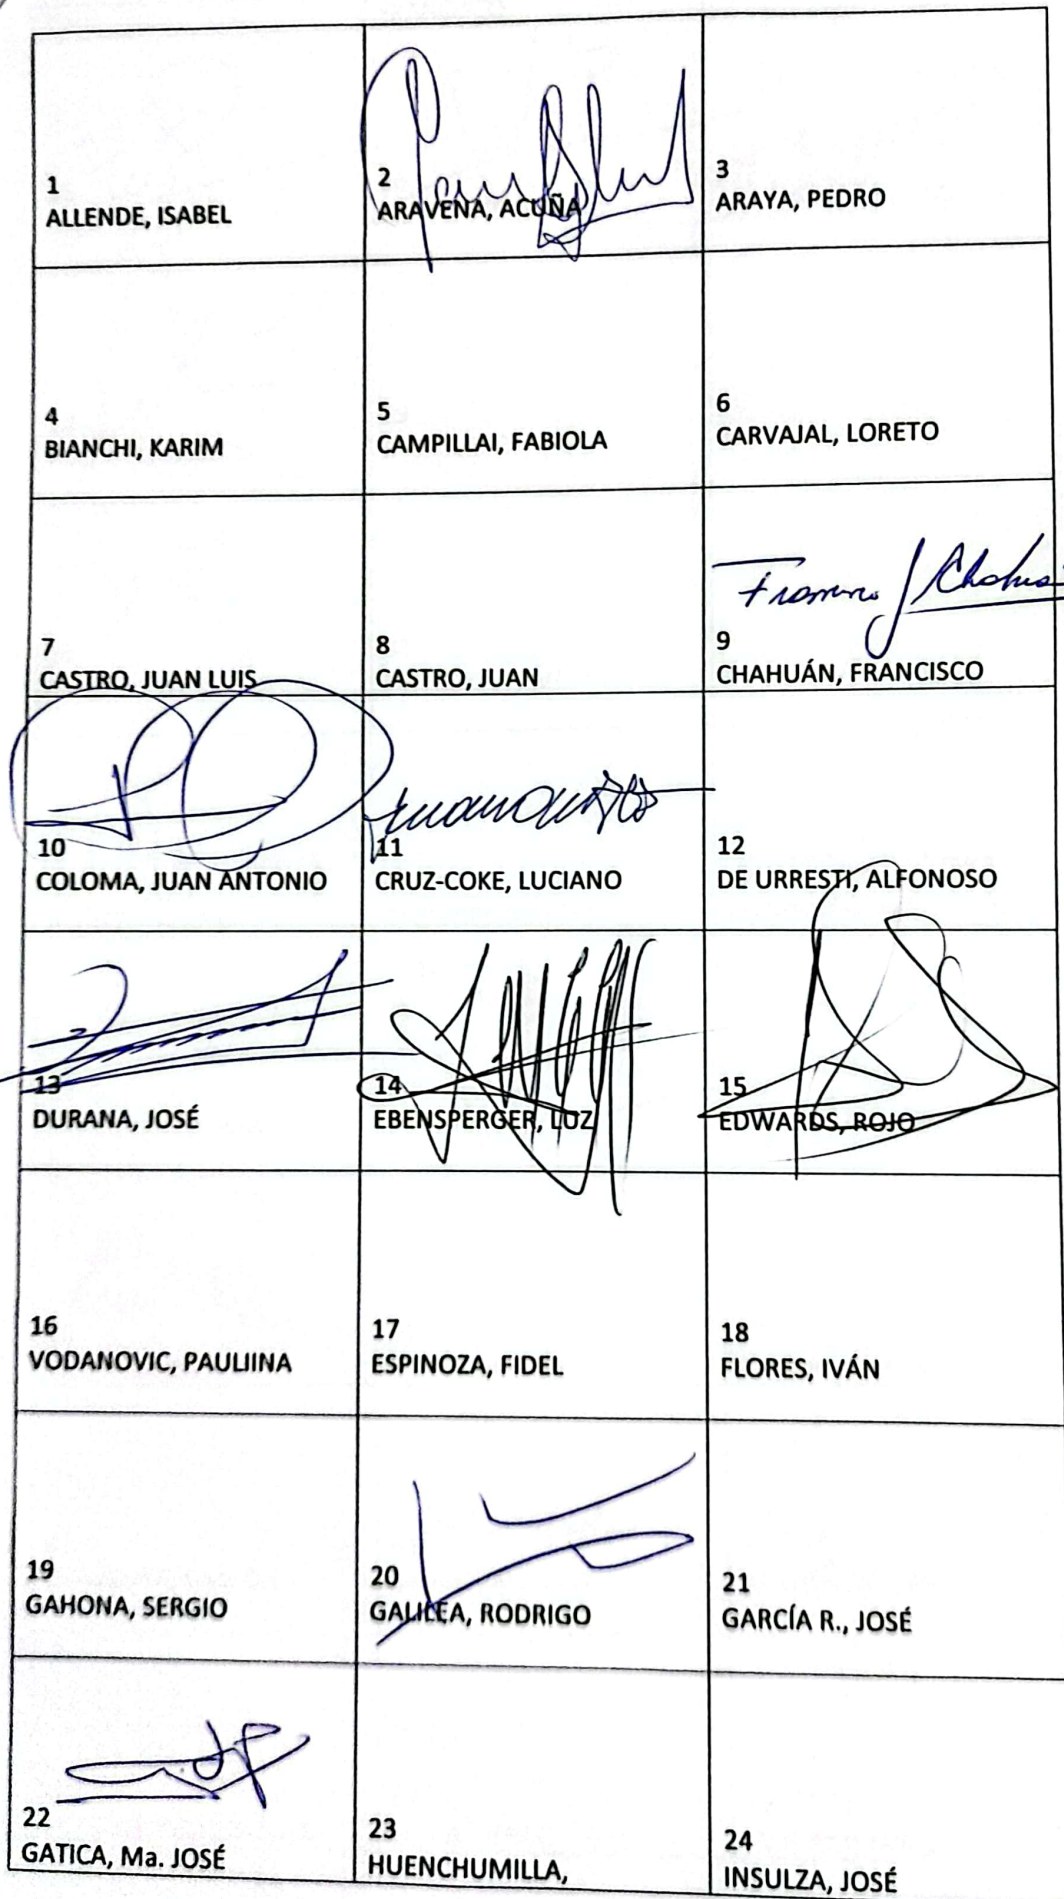 1
ALLENDE, ISABEL
2
ARAVENA, ACUÑA
3
ARAYA, PEDRO
4
BIANCHI, KARIM
5
CAMPILLAI, FABIOLA
6
CARVAJAL, LORETO
7
CASTRO, JUAN LUIS
8
CASTRO, JUAN
Francisco J Chahua
9
CHAHUÁN, FRANCISCO
10
COLOMA, JUAN ANTONIO
11
CRUZ-COKE, LUCIANO
12
DE URRESTI, ALFONOSO
13
DURANA, JOSÉ
14
EBENSPERGER, LUZ
15
EDWARDS, ROJO
16
VODANOVIC, PAULIINA
17
ESPINOZA, FIDEL
18
FLORES, IVÁN
19
GAHONA, SERGIO
20
GALILEA, RODRIGO
21
GARCÍA R., JOSÉ
22
GATICA, Ma. JOSÉ
23
HUENCHUMILLA,
24
INSULZA, JOSÉ